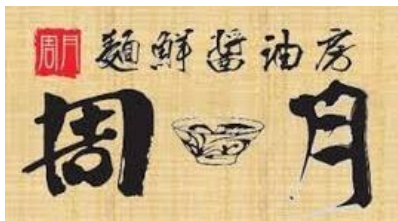 周月 麺鮮醤油房
周月